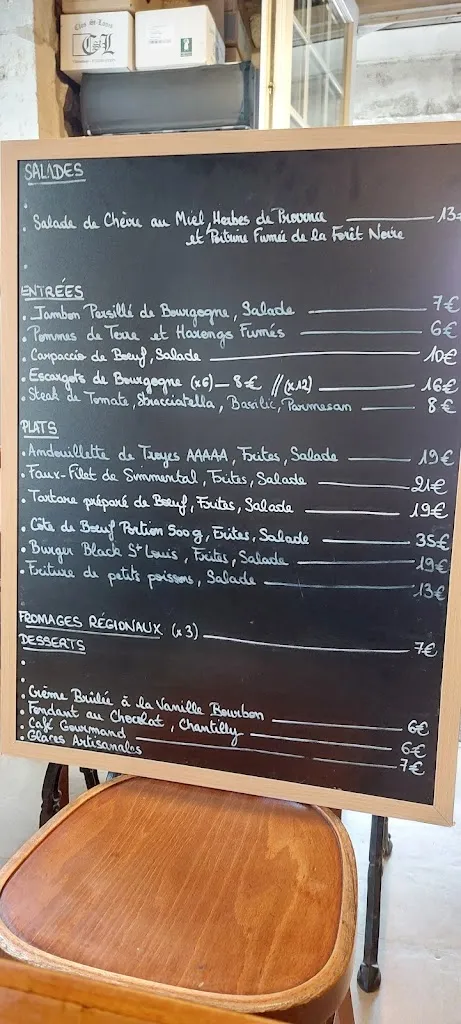 Clos St-Louis
CSL
SALADES
. Salade de Chèvre au Miel, Herbes de Provence — 13€
et Poitrine Fumée de la Forêt Noire
ENTRÉES
. Jambon Persillé de Bourgogne, Salade — 7€
. Pommes de Terre et Harengs Fumés — 6€
. Carpaccio de Bœuf, Salade — 10€
. Escargots de Bourgogne (x6) — 8€ // (x12) — 16€
. Steak de Tomate, Stracciatella, Basilic, Parmesan — 8€
PLATS
. Andouillette de Troyes AAAAA, Frites, Salade — 19€
. Faux-Filet de Simmental, Frites, Salade — 21€
. Tartare préparé de Bœuf, Frites, Salade — 19€
. Côte de Bœuf Portion 500g, Frites, Salade — 35€
. Burger Black St Louis, Frites, Salade — 19€
. Friture de petits poissons, Salade — 13€
FROMAGES RÉGIONAUX (x3) — 7€
DESSERTS
. Crème Brûlée à la Vanille Bourbon — 6€
. Fondant au Chocolat, Chantilly — 6€
. Café Gourmand — 7€
. Glaces Artisanales